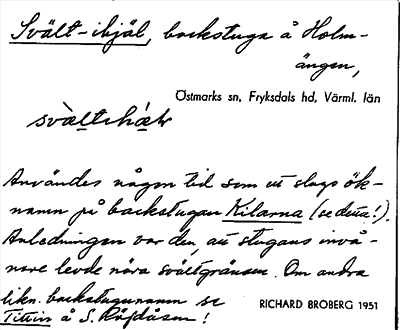 Svält-ihjäl, backstuga å Holm-
ängen,
Östmarks sn, Fryksdals hd, Värml. län
Användes någon tid som ett slags ök-
namn på backstugan Kilarna (se detta!).
Anledningen var den, att stugans invå-
nare levde nära svältgränsen. Om andra
likn. backstugunamn se
Tittin å S. Röjdåsen!
RICHARD BROBERG 1951